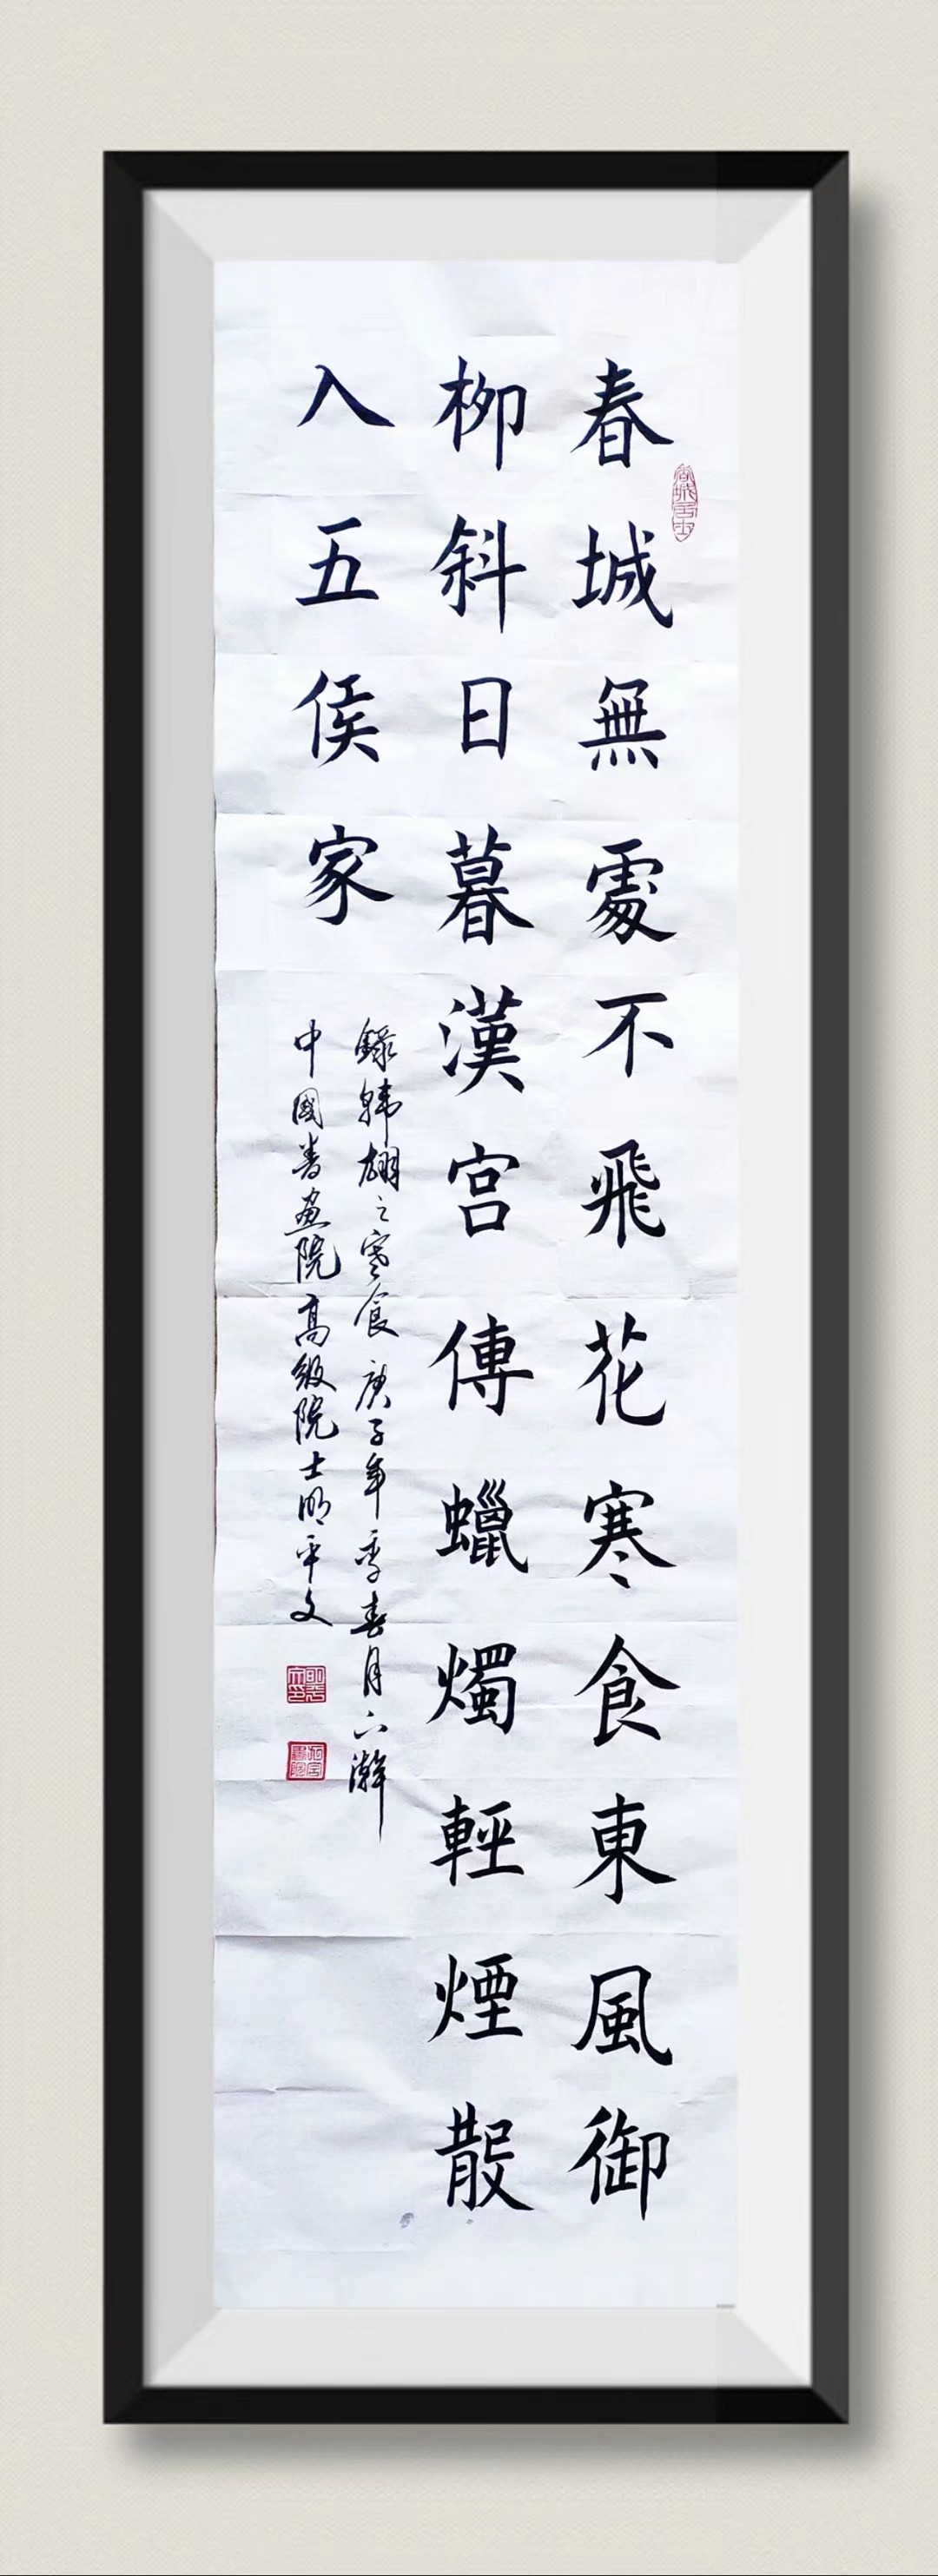 春城無處不飛花寒食東風御
柳斜日暮漢宫傳蠟燭輕煙散
入五侯家
錄韩翃之寒食庚子年季春月六瀚
中國書画院高级院士明平文